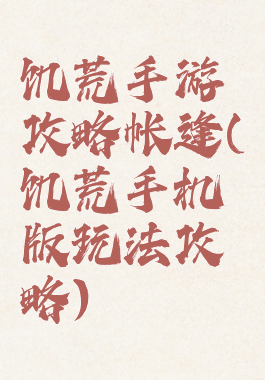 饥荒手游
攻略帐篷(
饥荒手机
版玩法攻
略)